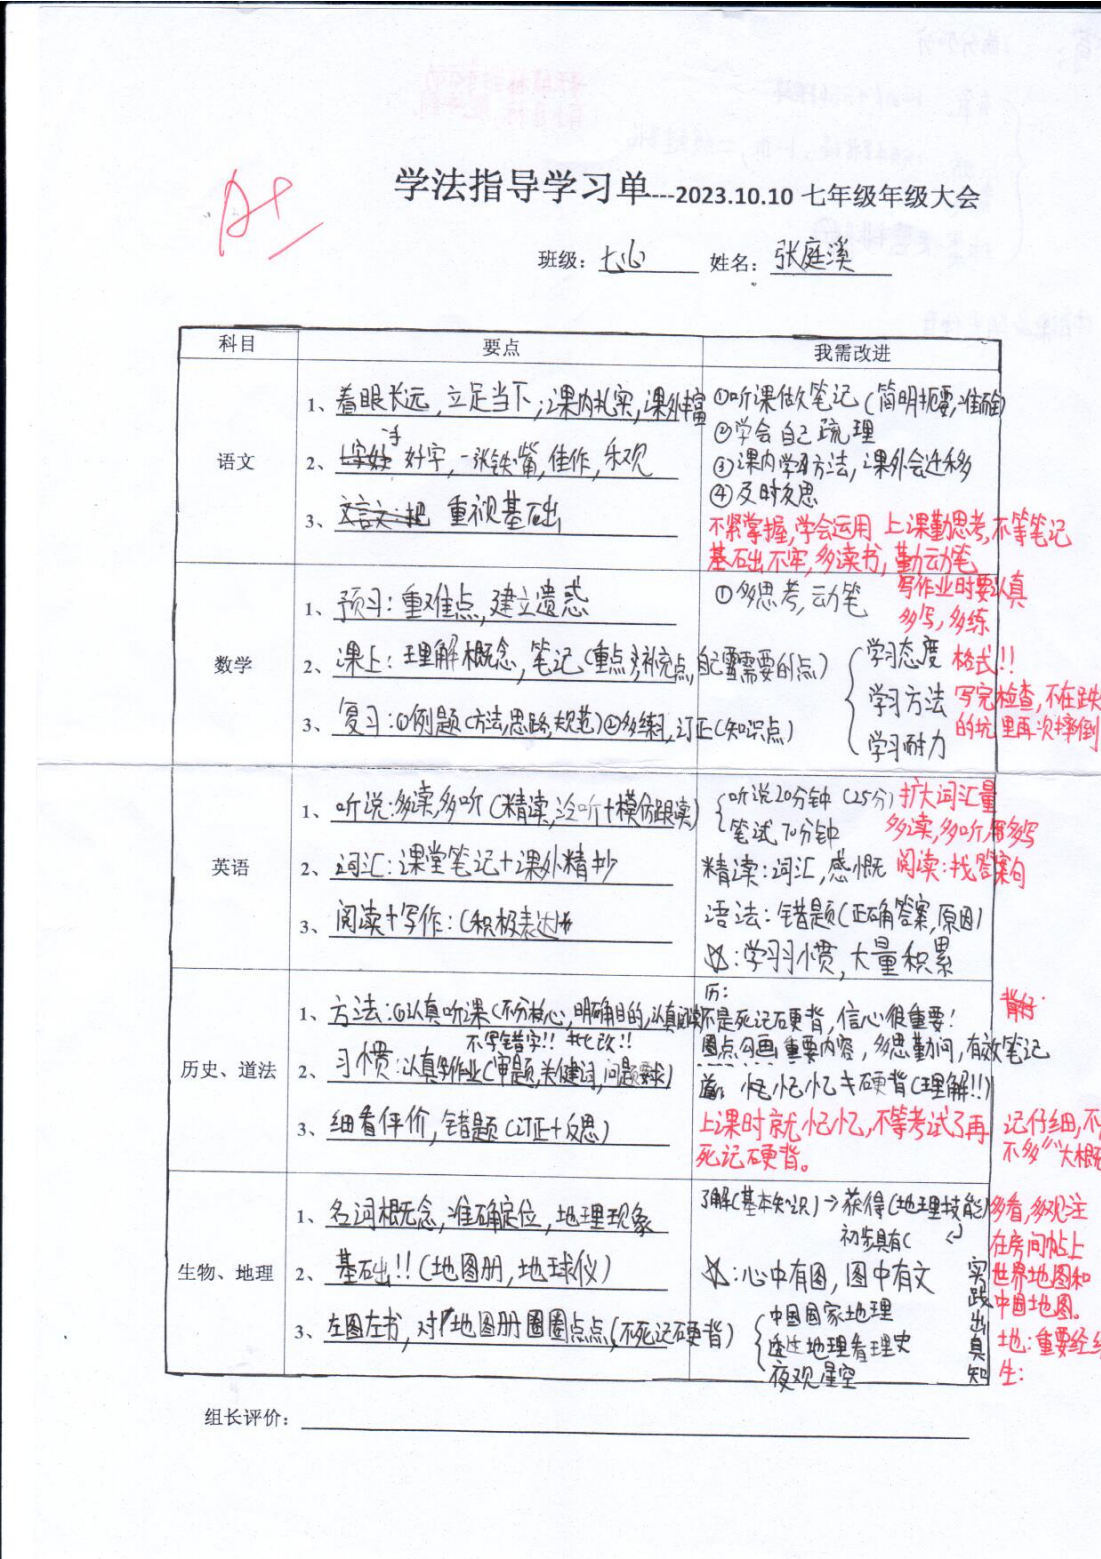 A+
学法指导学习单---2023.10.10 七年级年级大会
班级: 七(6) 姓名: 张庭溪
科目 要点 我需改进
语文
1、着眼长远,立足当下;课内扎实,课外丰富
2、一手好字,一张铁嘴,佳作,乐观
3、重视基础
①听课做笔记(简明扼要,准确)
②学会自己疏理
③课内学习方法,课外会迁移
④及时反思
不紧掌握,学会运用 上课勤思考,不等笔记
基础不牢,多读书,勤动笔
数学
1、预习:重难点,建立遗惑
2、课上:理解概念,笔记(重点,补充点,自己需要的点)
3、复习:①例题(方法,思路,规范)②多练习,订正(知识点)
①多思考,动笔
写作业时要认真
多写,多练
学习态度 格式!!
学习方法 写完检查,不在跌
学习耐力 的坑里再次摔倒
英语
1、听说:多读,多听(精读,泛听+模仿跟读)
2、词汇:课堂笔记+课外精抄
3、阅读+写作:(积极表达
听说20分钟(25分) 扩大词汇量
笔试70分钟 多读,多听,多写
精读:词汇,感慨 阅读:找答案句
语法:错题(正确答案,原因)
☆:学习习惯,大量积累
历史、道法
1、方法:①认真听课(不分核心,明确目的,认真阅读
不写错字!! 批改!!
2、习惯:认真作业(审题,关键词,问题要求)
3、细看评价,错题(订正+反思)
历:
不是死记硬背,信心很重要! 背好
圈点勾画重要内容,多思勤问,有效笔记
道:忆忆忆≠硬背(理解!!)
上课时就忆忆,不等考试了再 记仔细,不
死记硬背。 不多“大概
生物、地理
1、名词概念,准确定位,地理现象
2、基础!!(地图册,地球仪)
3、左图左书,对地图册圈圈点点(不死记硬背)
了解(基本知识)→获得(地理技能)
初步具有(
☆:心中有图,图中有文
中国国家地理
透过地理看历史
夜观星空
实践出真知
多看,多观注
在房间帖上
世界地图和
中国地图。
地:重要经纬
生:
组长评价: